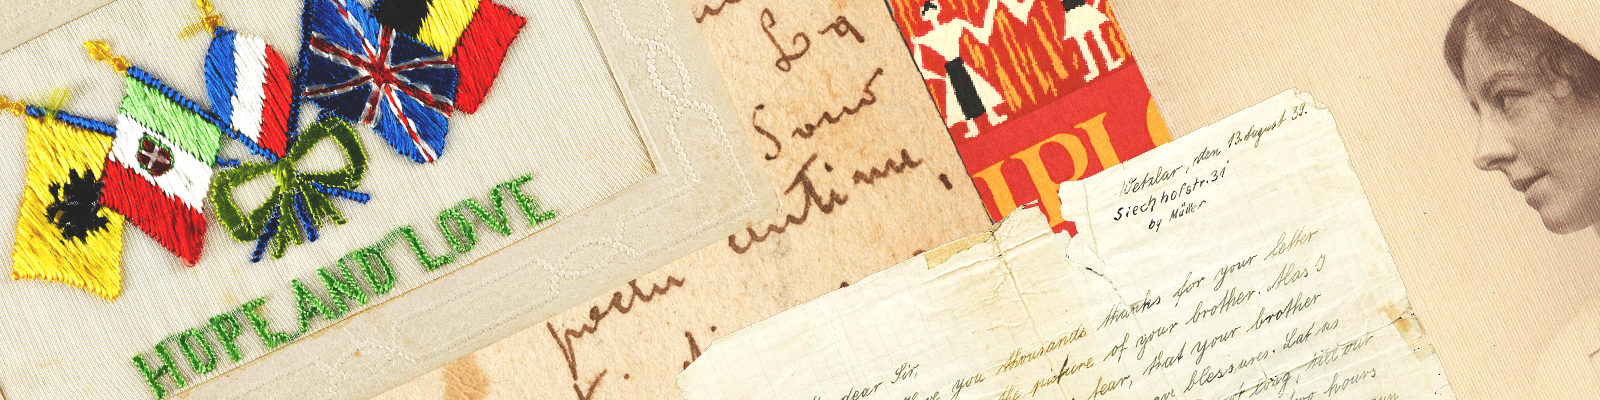 HOPE AND LOVE
La
Sono
poem
IPLO
Wetzlar, den 13. August 39.
Siechhofstr. 31
by Müller
dear Sir,
you thousands thanks for your letter
the picture of your brother. Alas I
fear, that your brother
blessures. Lat us
long, till our
two hours